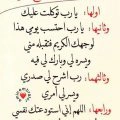 اولها: يارب توكلت عليك
وثانيها: يارب احتسب يومي هذا
لوجهك الكريم فتقبله مني
ويسره لي وبارك لي فيه
وثالثهما: رب اشرح لي صدري
ويسر لي أمري
ورابعها: اللهم إني استودعتك نفسي